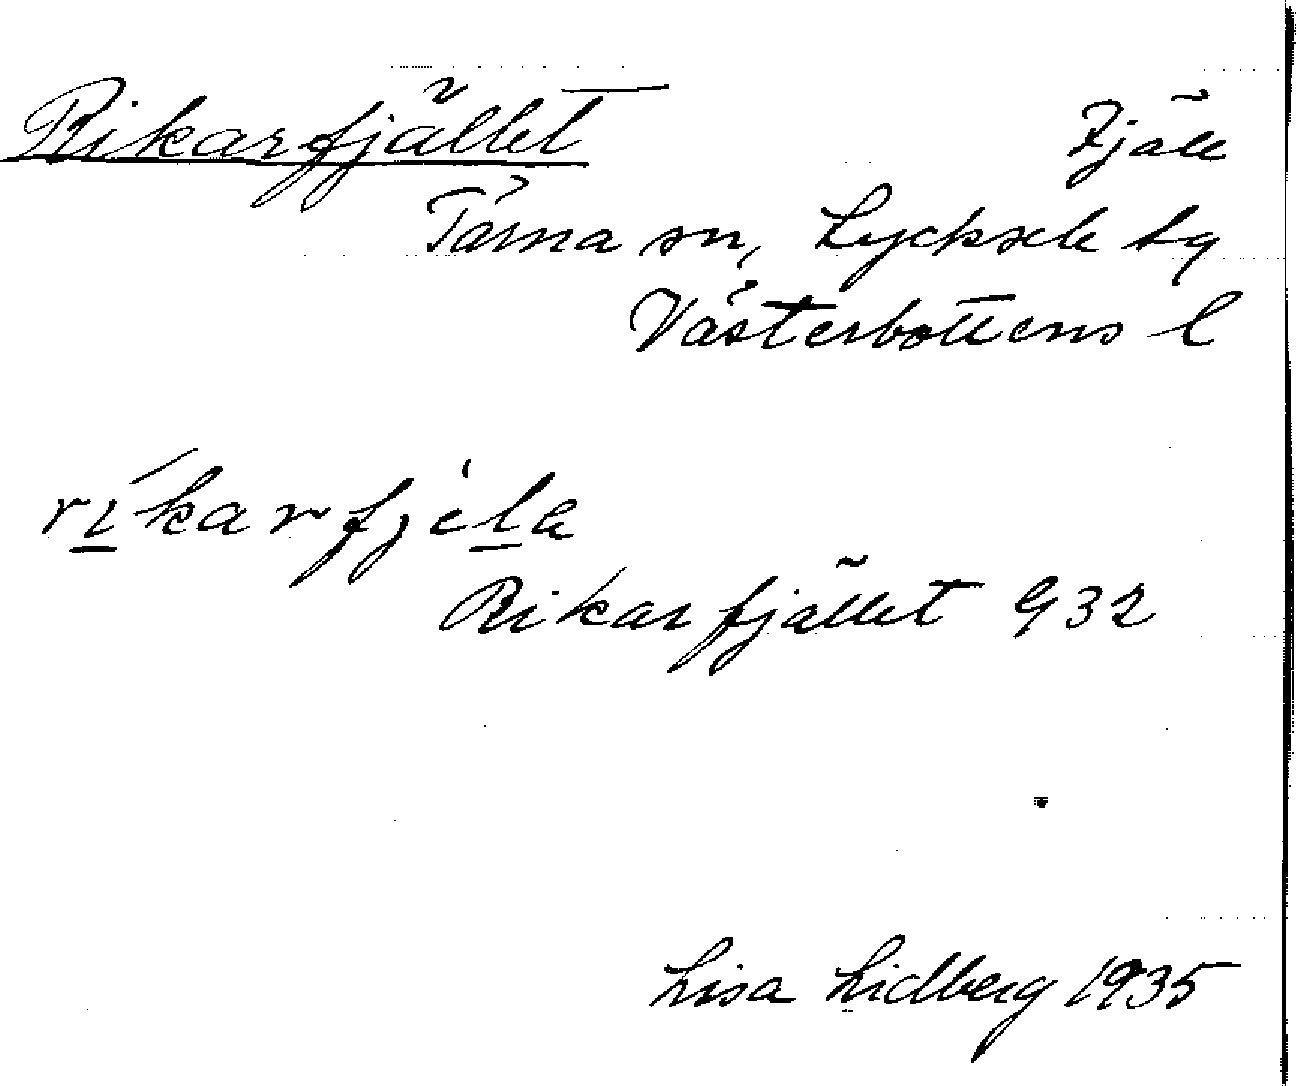 Rikarfjället Fjäll
Tärna sn, Lycksele tg
Västerbottens l
ríkarfjèla
Rikarfjället 932
Lisa Lidberg 1935